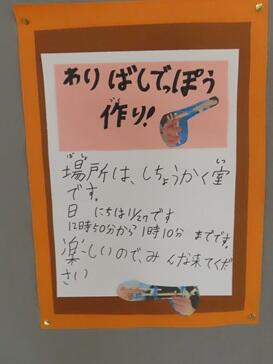 わりばしでっぽう
作り!
場所は、しちょうかく室
です。
日 にちは1/27です
12時50分から1時10分 までです。
楽しいので、みんな来てくだ
さい